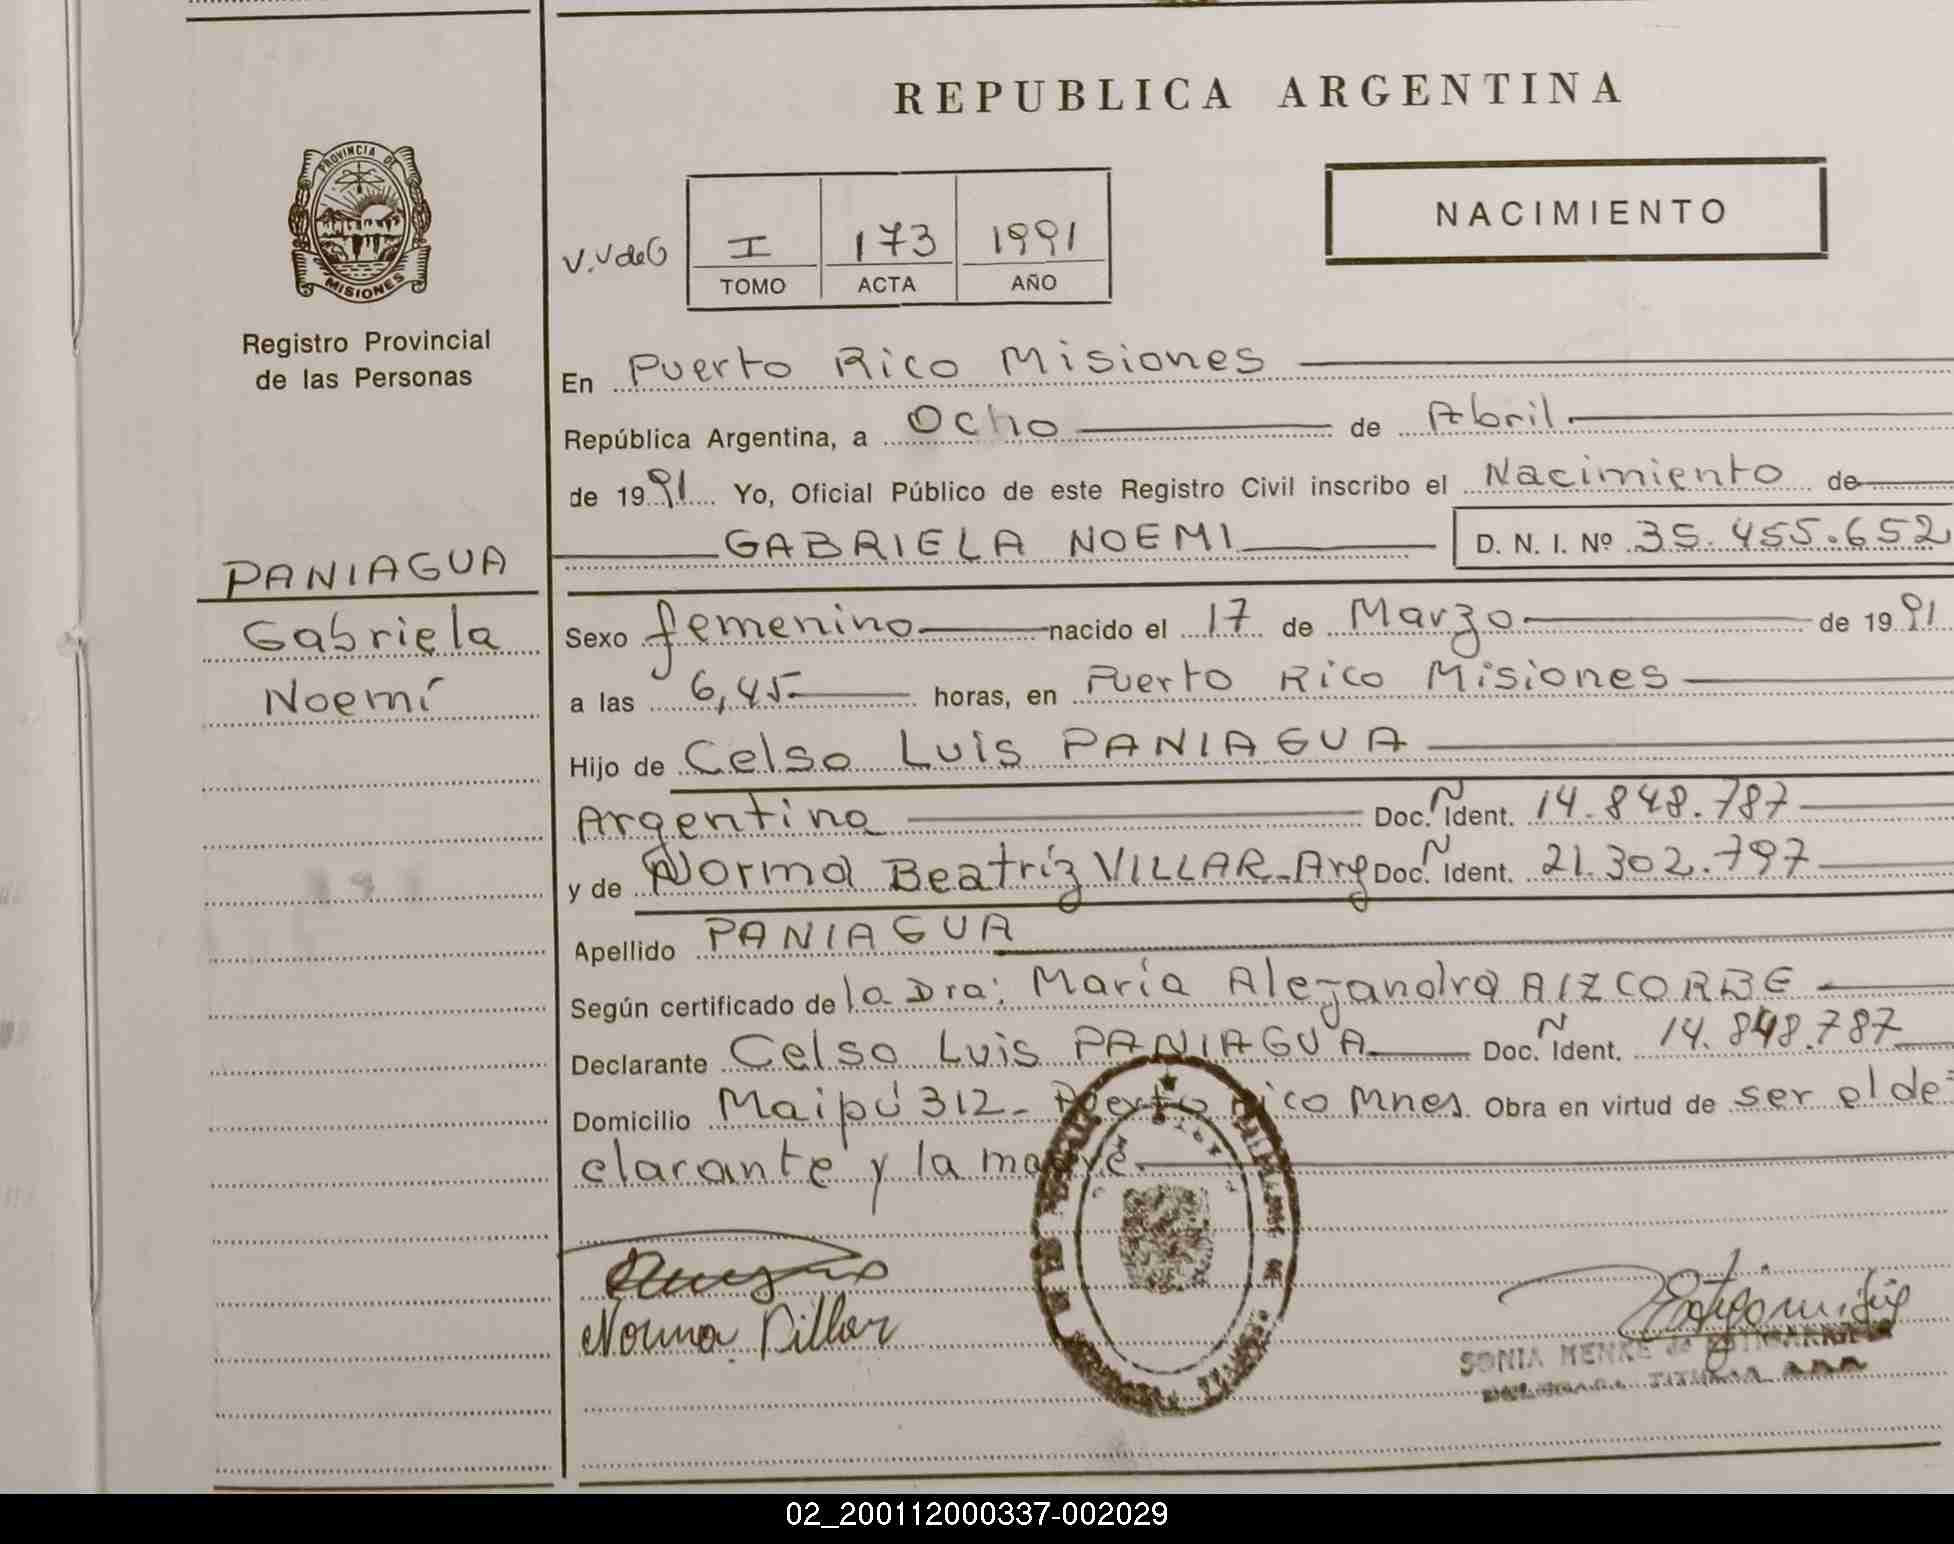 REPUBLICA ARGENTINA
PROVINCIA DE
MISIONES
Registro Provincial
de las Personas
NACIMIENTO
V.V de G
I 173 1991
TOMO ACTA AÑO
En Puerto Rico Misiones
República Argentina, a Ocho de Abril
de 1991 Yo, Oficial Público de este Registro Civil inscribo el Nacimiento de
GABRIELA NOEMI D. N. I. Nº 35.455.652
PANIAGUA
Gabriela
Noemí
Sexo femenino nacido el 17 de Marzo de 1991
a las 6,45 horas, en Puerto Rico Misiones
Hijo de Celso Luis PANIAGUA
Argentino Doc. Ñ Ident. 14.848.787
y de Norma Beatriz VILLAR-Arg Doc. Ñ Ident. 21.302.797
Apellido PANIAGUA
Según certificado de la Dra: María Alejandra AIZCORBE
Declarante Celso Luis PANIAGUA Doc. Ñ Ident. 14.848.787
Domicilio Maipú 312- Puerto Rico Mnes. Obra en virtud de ser el de=
clarante y la madre.
Norma Villar
SONIA MENKE de
TITULAR
02_200112000337-002029